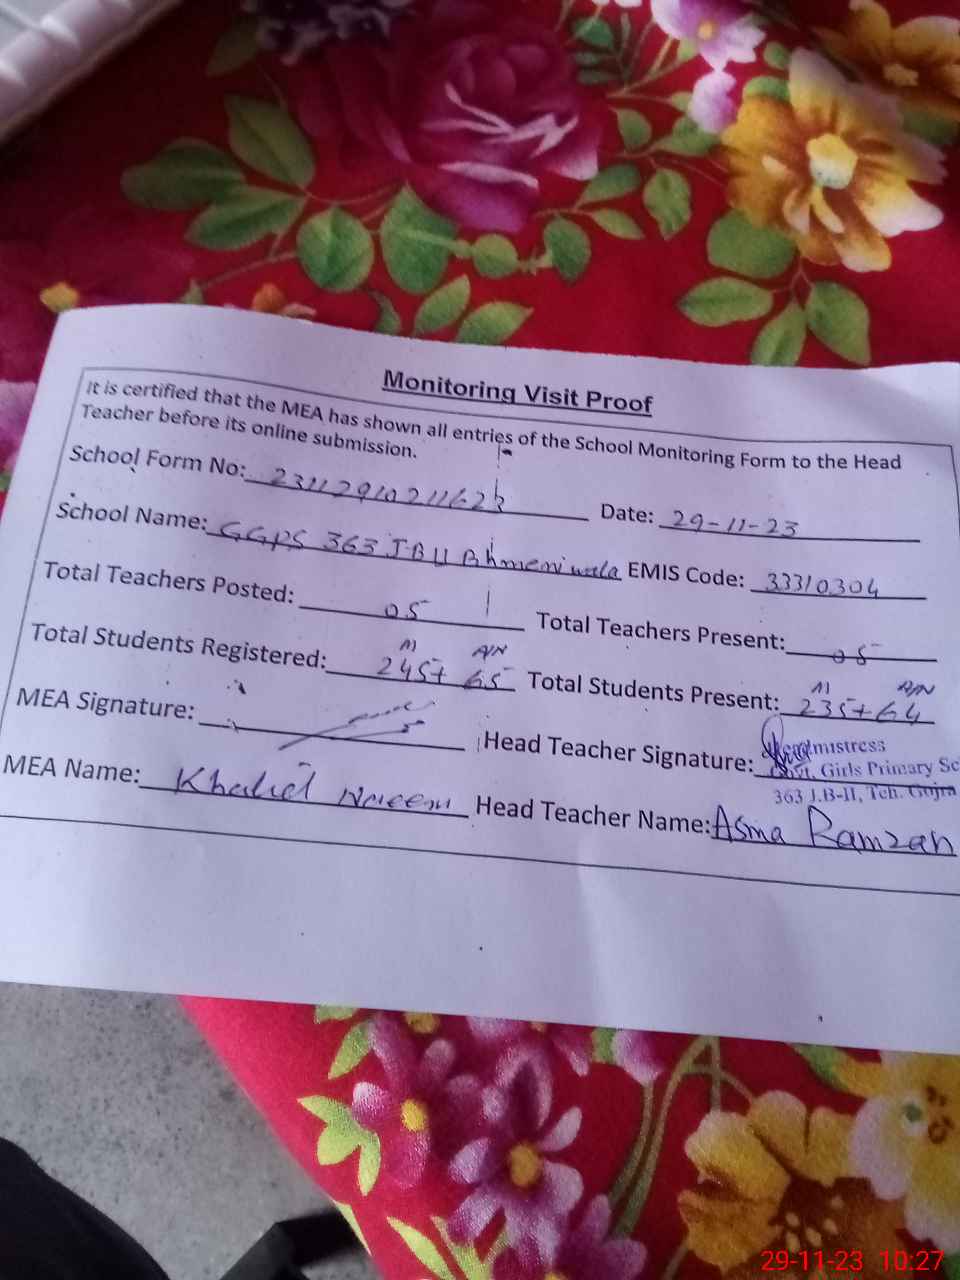 Monitoring Visit Proof
It is certified that the MEA has shown all entries of the School Monitoring Form to the Head
Teacher before its online submission.
School Form No: 2311291021162 Date: 29-11-23
School Name: GGPS 363 JB II Bhmeniwala EMIS Code: 33310304
Total Teachers Posted: 05 Total Teachers Present: 05
M A/N M A/N
Total Students Registered: 245+ 65 Total Students Present: 235+64
MEA Signature: Head Teacher Signature:
Headmistress
Govt. Girls Primary Sc
363 J.B-II, Teh. Gojra
MEA Name: Khalid Naeem Head Teacher Name: Asma Ramzan
29-11-23 10:27